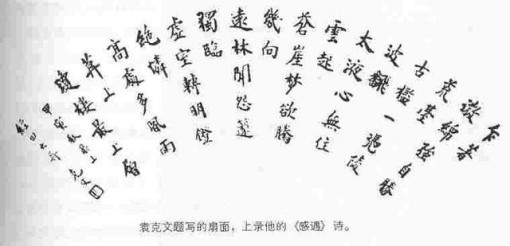 乍著
微綿強自勝
荒臺
古檻一憑陵
波飛
太液心無住
雲起
蒼崖夢欲騰
幾向
遠林聞怨篴
獨臨
虛室轉明鐙
絕憐
高處多風雨
莫上
瓊樓最上層
甲寅秋
袁克文题写的扇面，上录他的《感遇》诗。